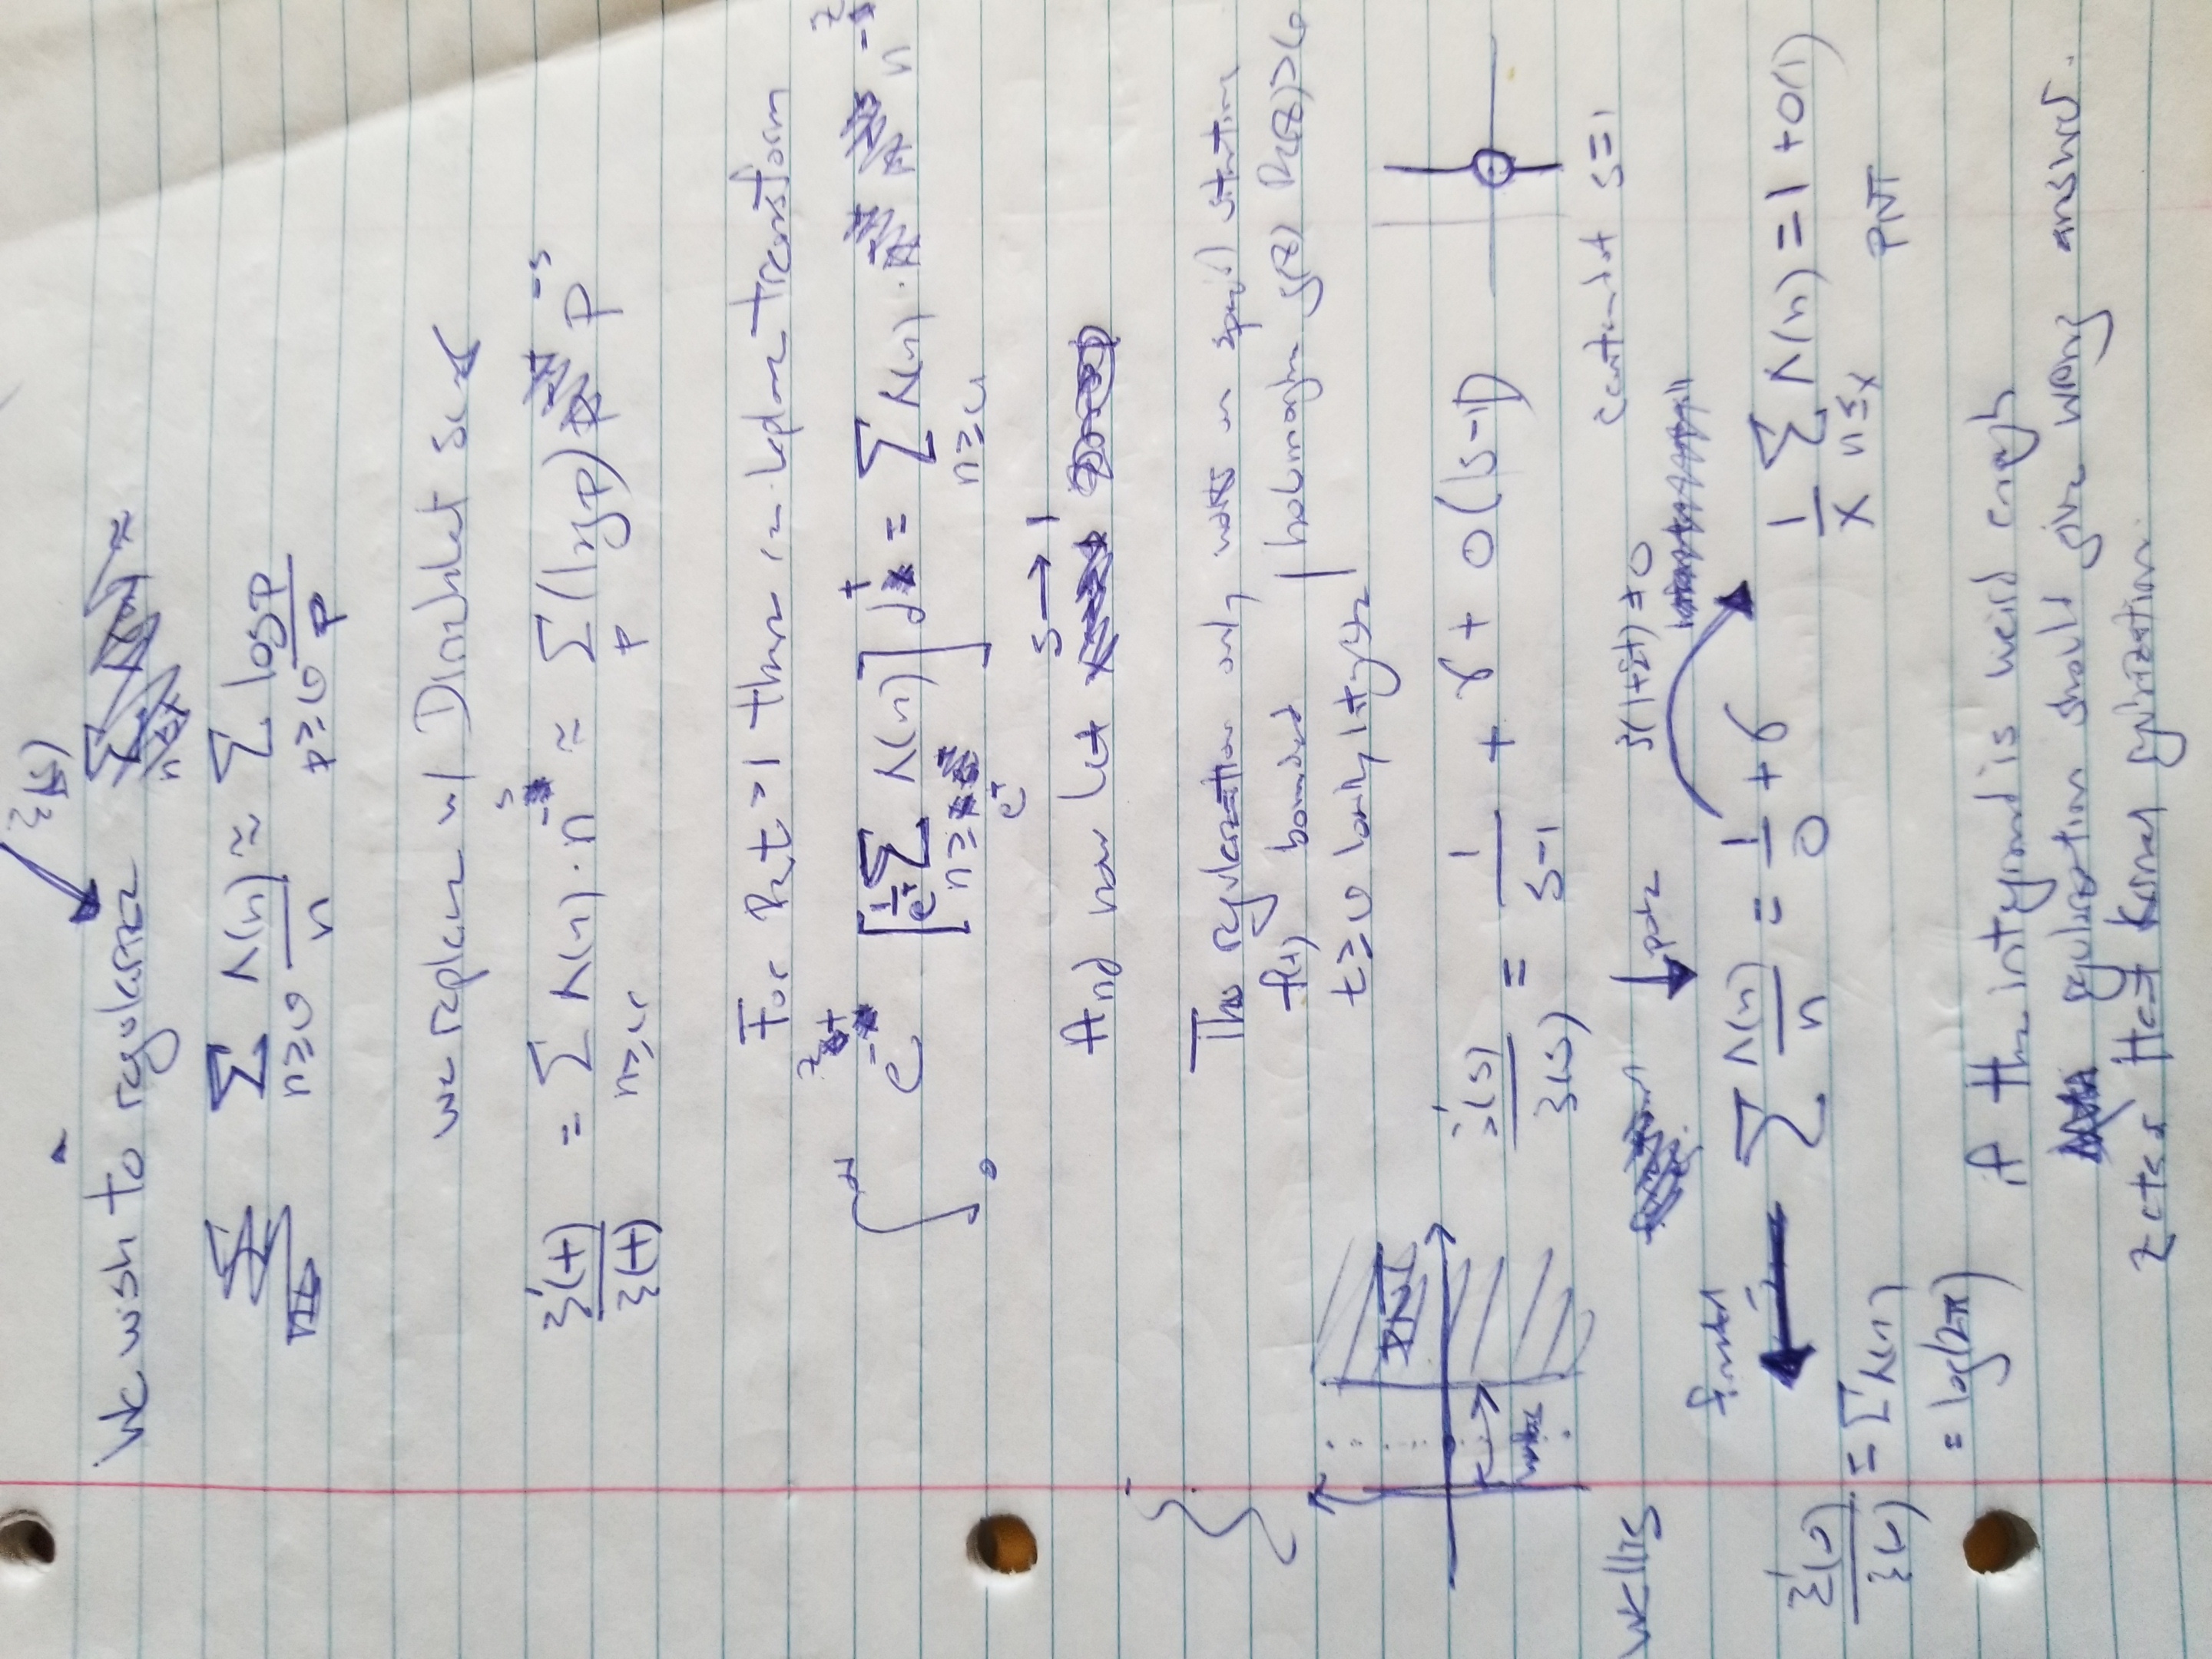 ζ(s)
We wish to regularize
Σ n≥0 Λ(n)/n ≈ Σ p≥0 log p/p
we replace w/ Dirichlet series
ζ'(t)/ζ(t) = Σ n≥0 Λ(n) · n^-s ≈ Σ p (log p) p^-s
For Re t > 1 there is Laplace transform
∫ 0 ∞ e^-zt [1/e^t Σ n≥e^t Λ(n)] dt = Σ n≥0 Λ(n) · n^-z
And now let s → 1
The regularization only works in special situation
f(t) bounded | holomorphic g(z) Re(z)>0
t≥0 locally integrable
PNT
ζ'(s)/ζ(s) = 1/(s-1) + γ + o(|s-1|)
centered at s=1
Wallis
pole
ζ(1+it) ≠ 0
Σ Λ(n)/n = 1/0 + γ
1/x Σ n≤x Λ(n) = 1 + o(1)
PNT
ζ'(0)/ζ(0) = Σ Λ(n)
= log(2π)
if the integrand is weird enough
regularization should give wrong answer.
zeta & Heat Kernel regularization.